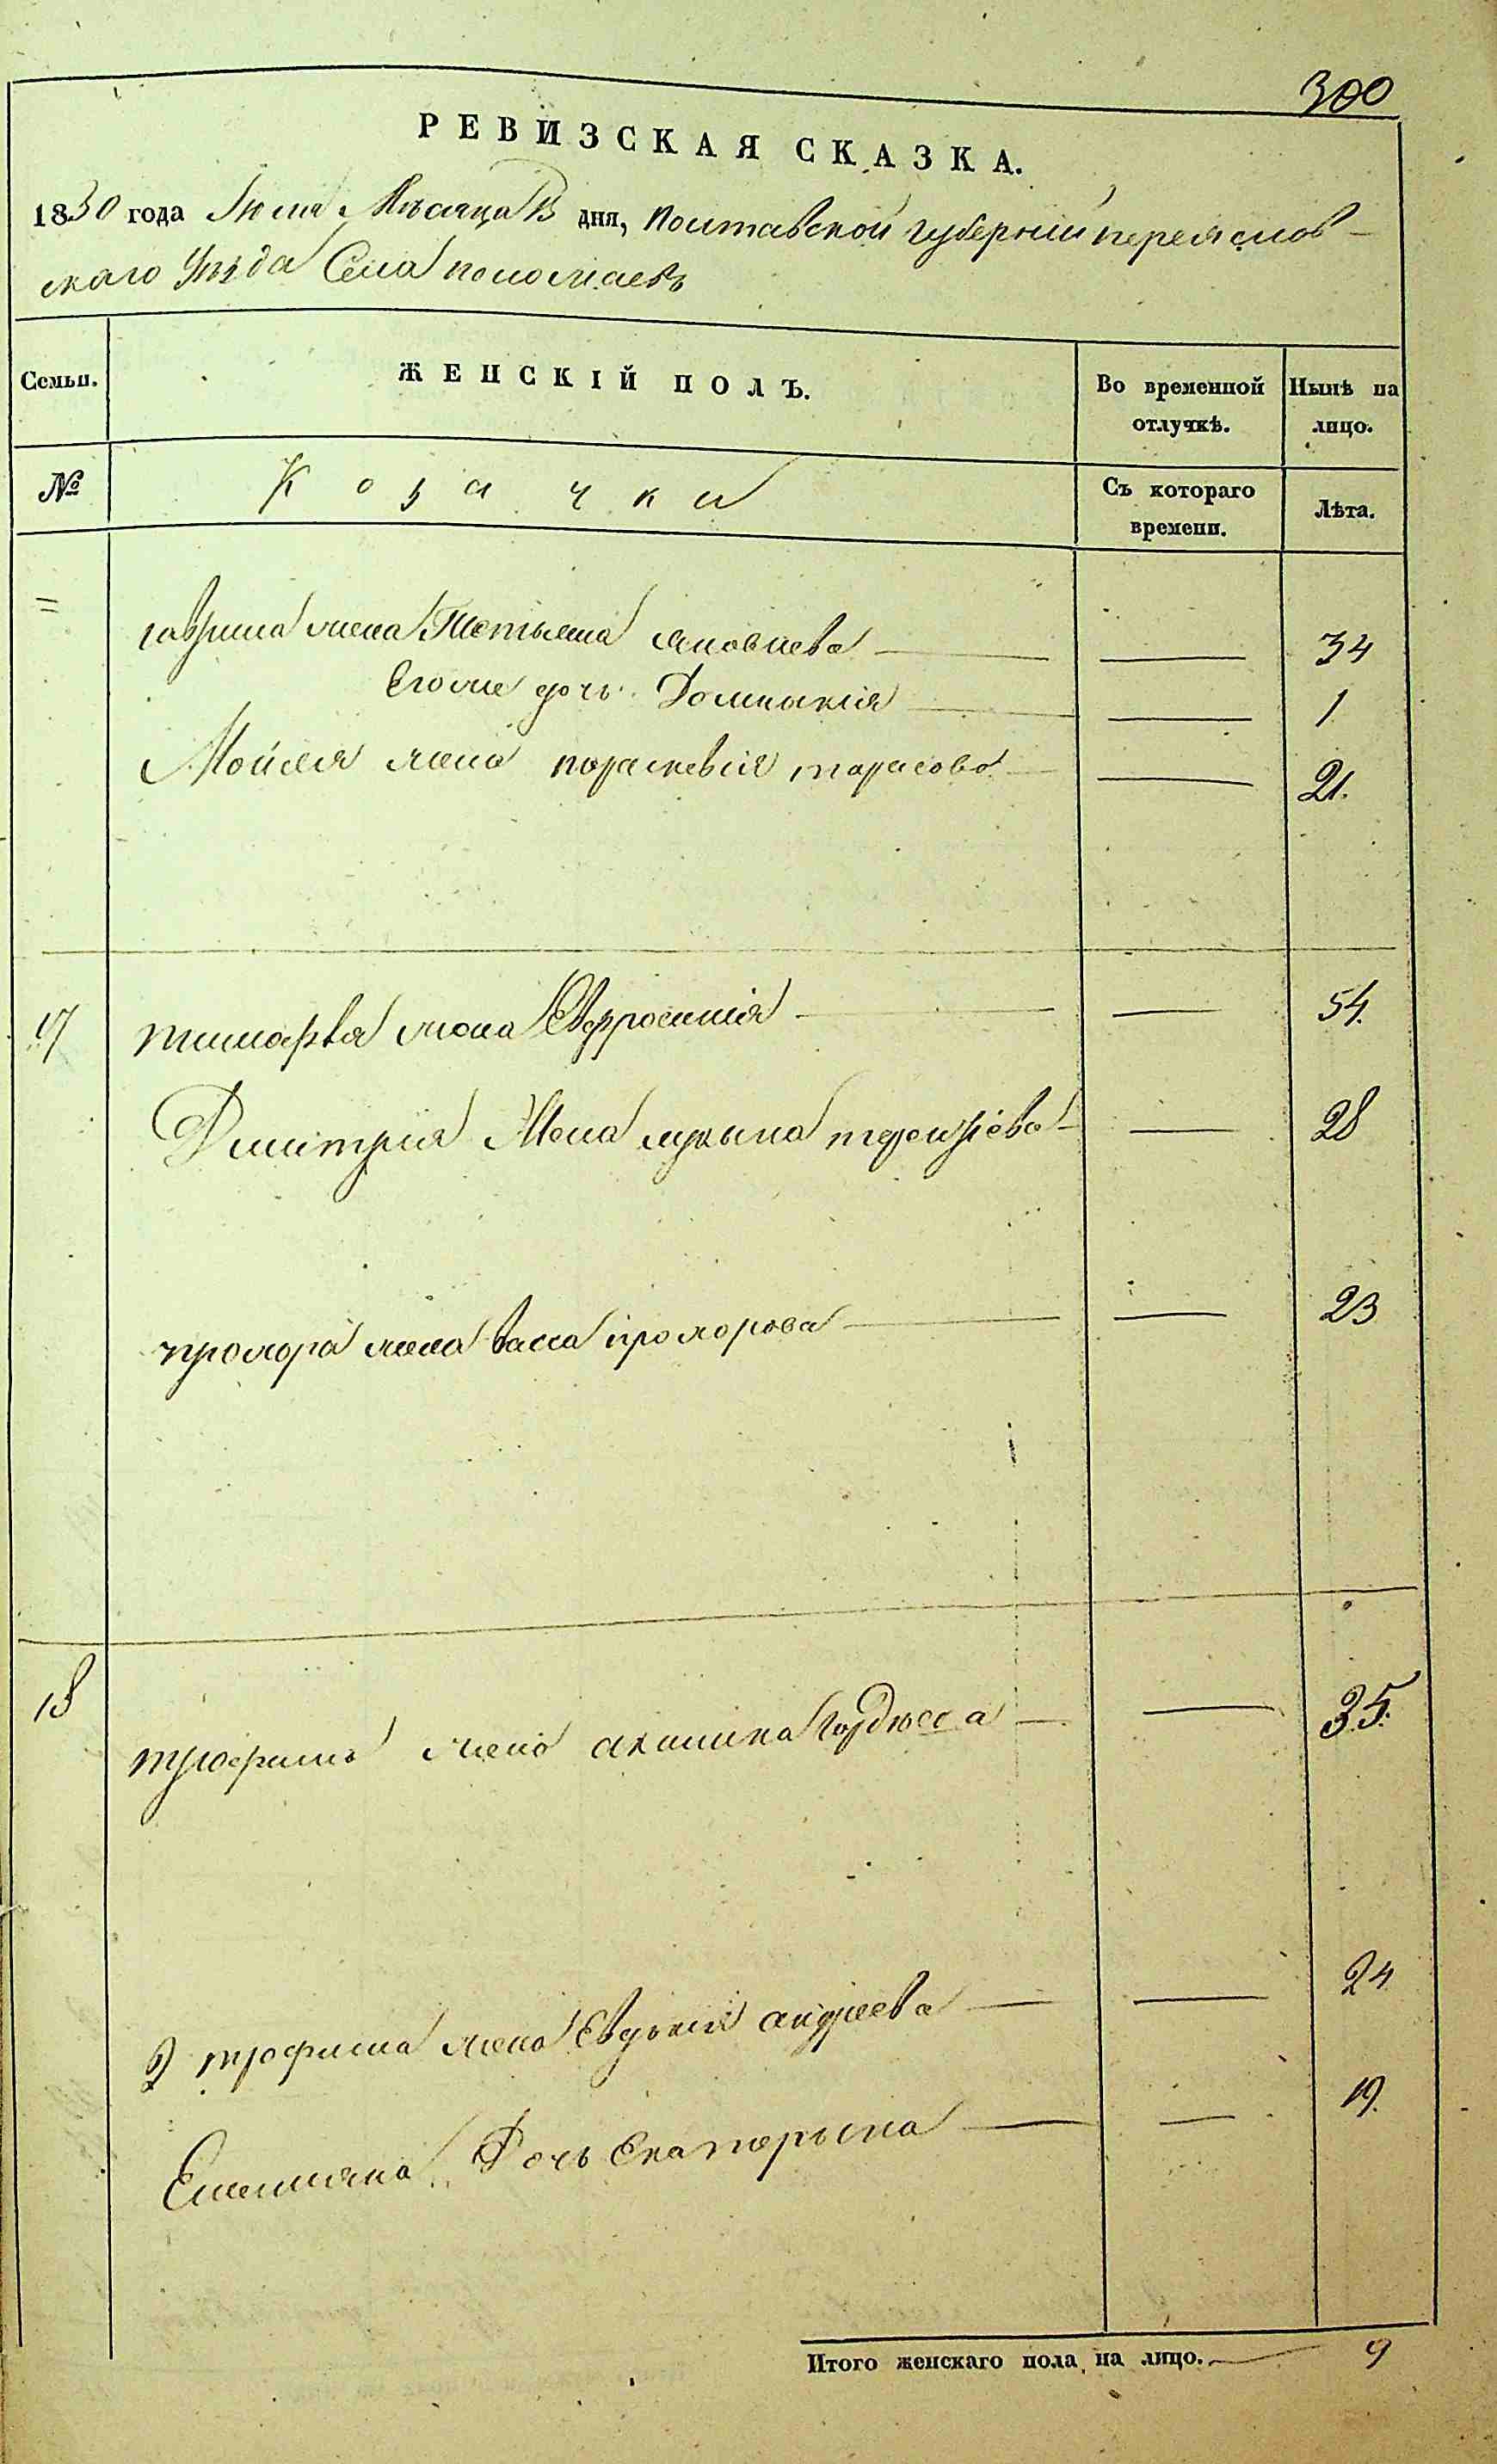 300
РЕВИЗСКАЯ СКАЗКА.
1830 года Іюля Мѣсяца 13 дня, Полтавской губерніи переяслов-
скаго Уѣзда Села
Семьи.
ЖЕНСКІЙ ПОЛЪ.
Во временной отлучкѣ.
Нынѣ на лицо.
№
Козачки
Съ котораго времени.
Лѣта.
=
гаврила жена Тетьяна яковлева — — 34
Его же дочь Домникия — — 1
Мойсея жена параскевія тарасова — — 21.
17
тимофѣя жена Евфросинія — — 54.
Дмитрія Жена — 28
прохора жена васса прохорова — — 23
18
трофима жена акилина гордѣева — — 35.
2 трофима жена Евдокия андреева — — 24
Емельяна Дочь Екатерина — — 19.
Итого женскаго пола на лицо. — 9